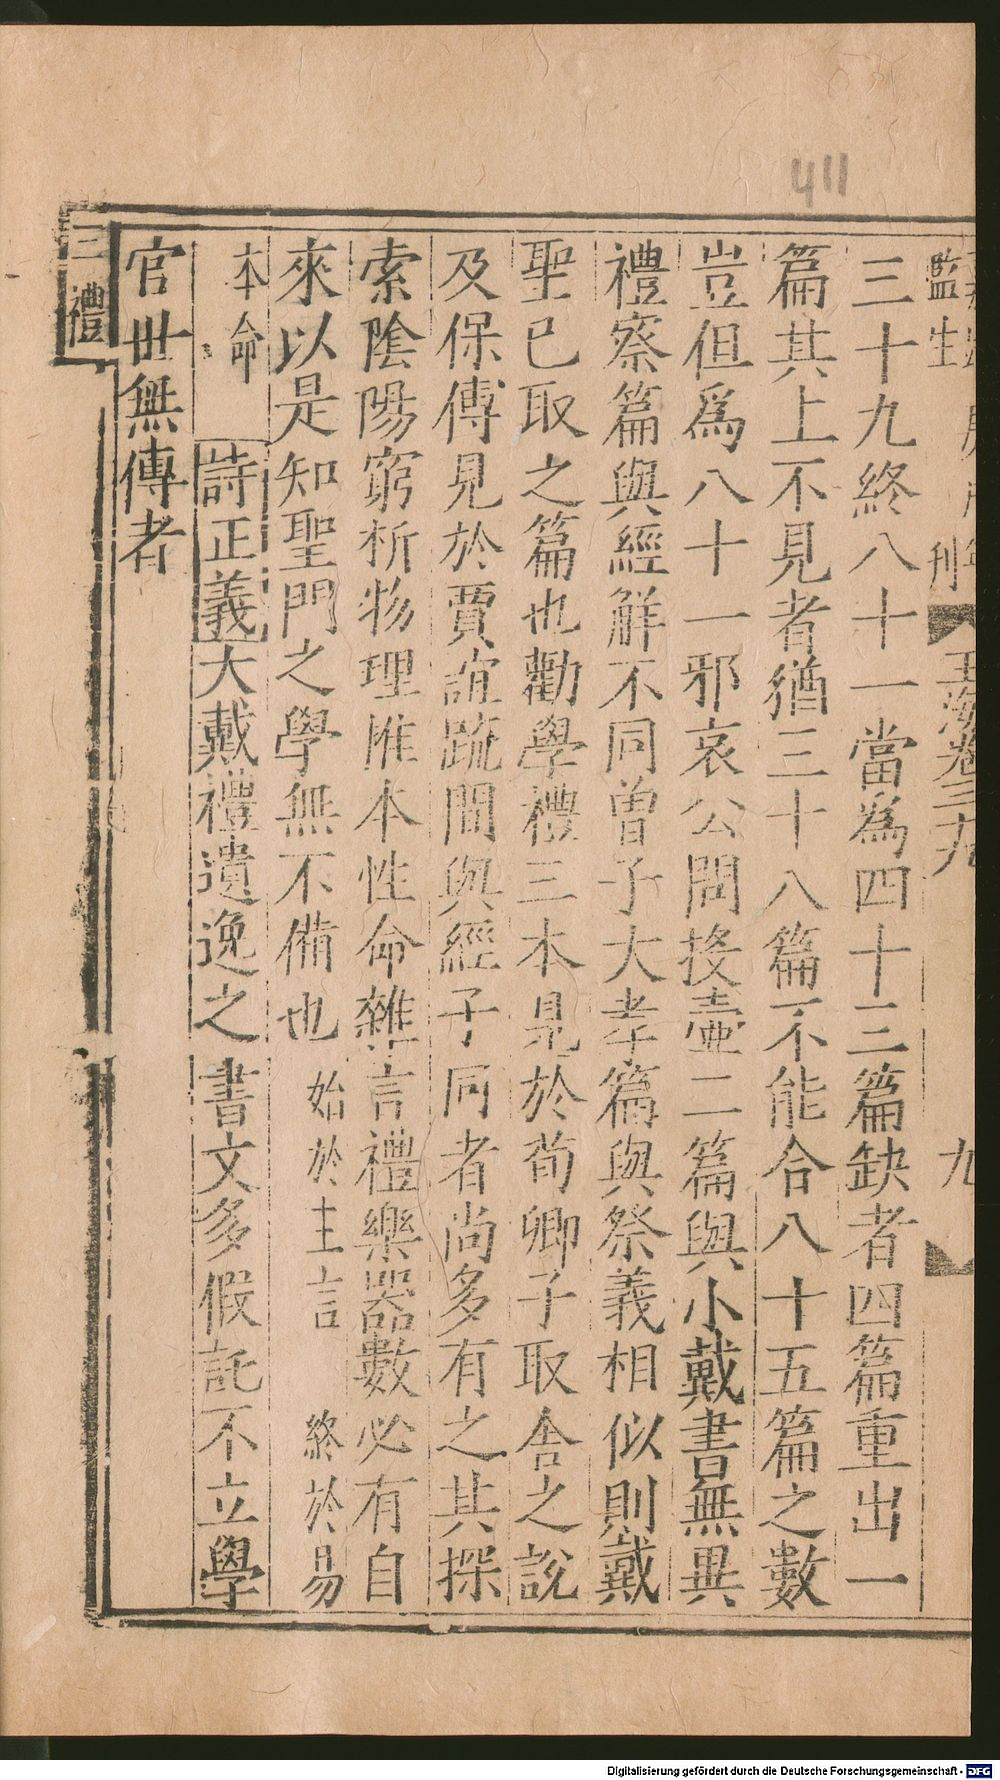 411
監生
刊
玉海卷三九
九
三十九終八十一當爲四十三篇缺者四篇重出一
篇其上不見者猶三十八篇不能合八十五篇之數
豈但爲八十一邪哀公問投壺二篇與小戴書無異
禮察篇與經解不同曾子大孝篇與祭義相似則戴
聖已取之篇也勸學禮三本見於荀卿子取舍之說
及保傅見於賈誼疏間與經子同者尚多有之其探
索陰陽窮析物理推本性命雜言禮樂器數必有自
來以是知聖門之學無不備也始於主言終於易
本命詩正義大戴禮遺逸之書文多假託不立學
官世無傳者
三禮
Digitalisierung gefördert durch die Deutsche Forschungsgemeinschaft - DFG